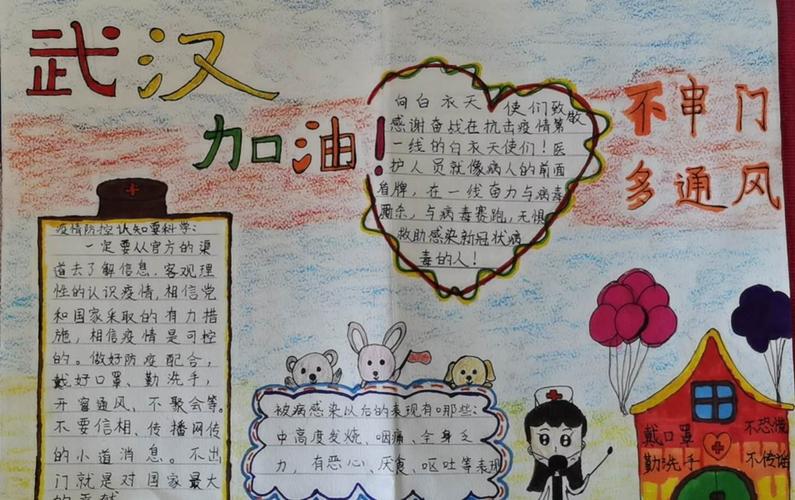 武汉
加油！
向白衣天使们致敬
感谢奋战在抗击疫情第
一线的白衣天使们！医
护人员就像病人的前面
盾牌，在一线奋力与病毒
厮杀，与病毒赛跑，无惧
救助感染新冠状病
毒的人！
不串门
多通风
疫情防控认知要科学：
一定要从官方的渠
道去了解信息，客观理
性的认识疫情，相信党
和国家采取的有力措
施，相信疫情是可控
的。做好防疫配合，
戴好口罩、勤洗手，
开窗通风、不聚会等。
不要信相、传播网传
的小道消息。不出
门就是对国家最大
的贡献
被病感染以后的表现有哪些：
中高度发烧、咽痛、全身乏
力，有恶心、厌食、呕吐等表现
戴口罩
勤洗手
不恐慌
不传谣